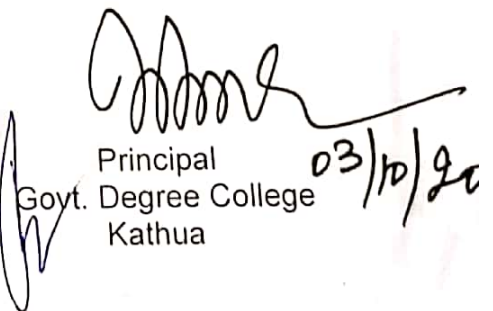 Principal
Govt. Degree College
Kathua
03/10/20